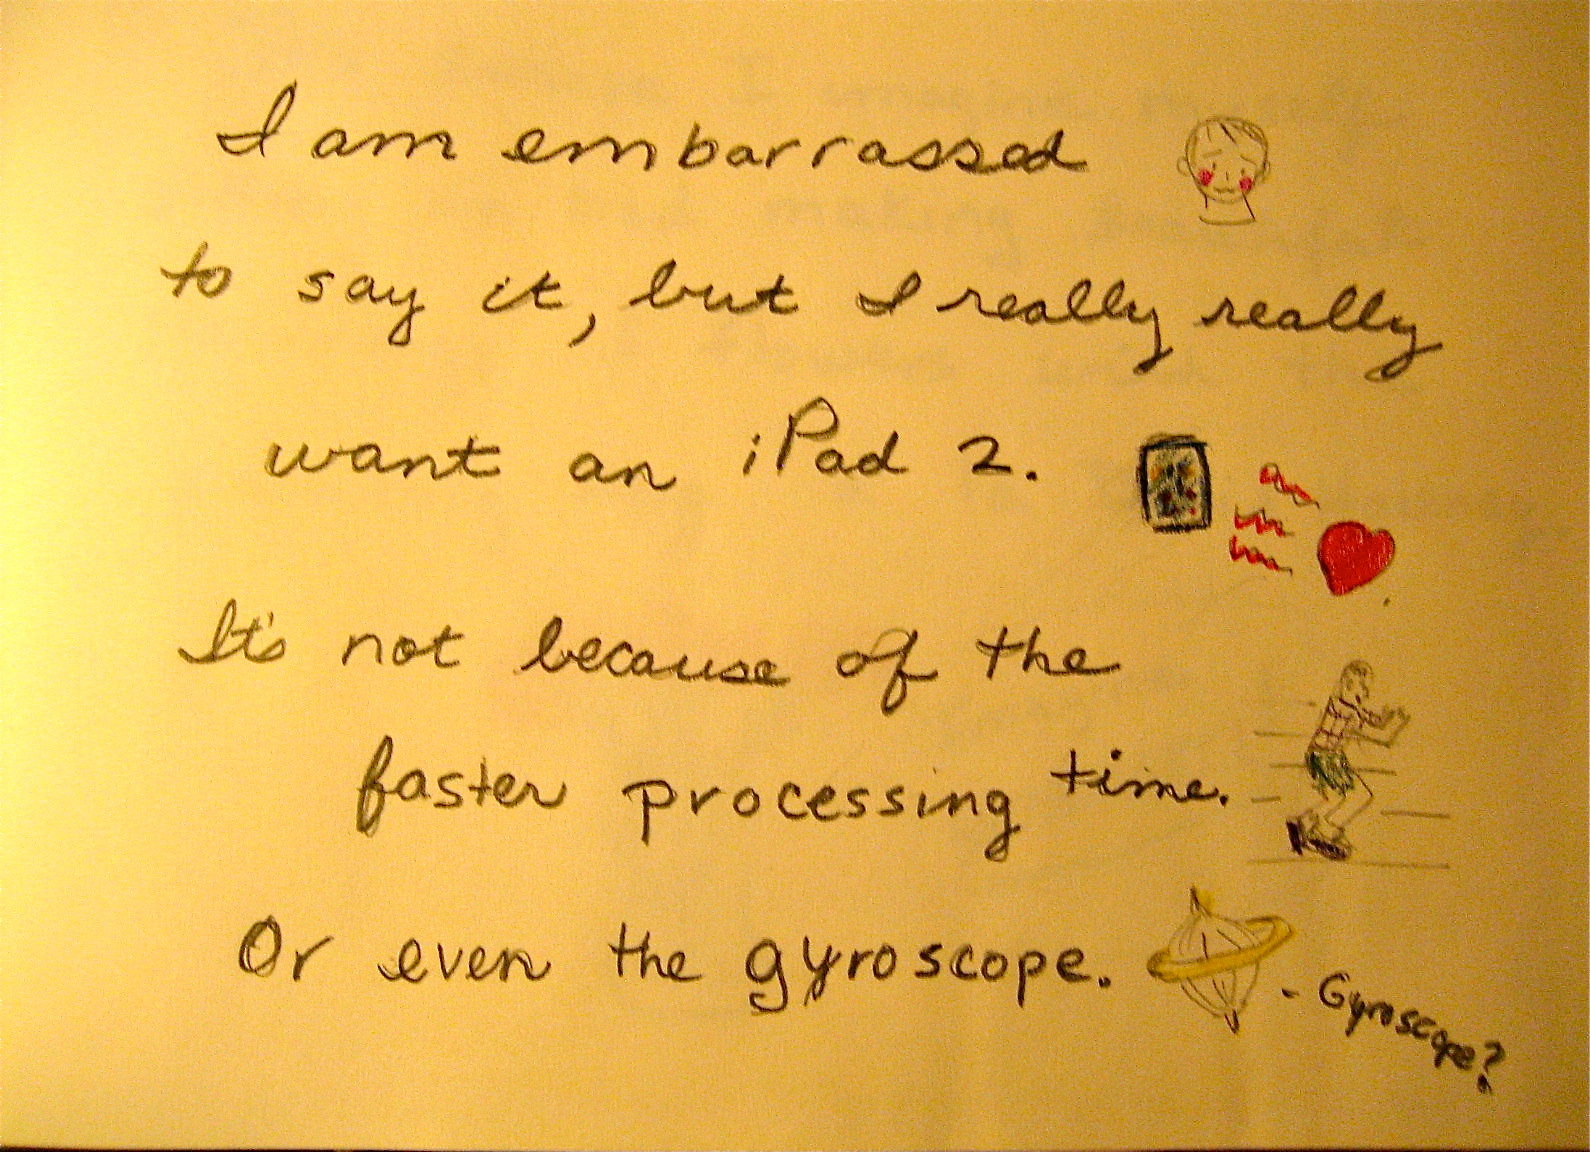 I am embarrassed
to say it, but I really really
want an iPad 2.
It's not because of the
faster processing time.
Or even the gyroscope.
- Gyroscope?